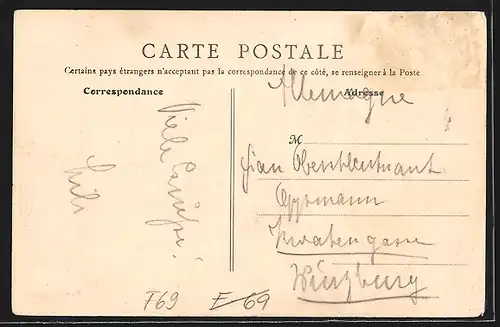 CARTE POSTALE
Certains pays étrangers n'acceptant pas la correspondance de ce côté, se renseigner à la Poste
Correspondance
Adresse
Allemagne
M
Frau Oberstleutnant
Kroatengasse
Würzburg
Viele Grüße!
F69 E-69